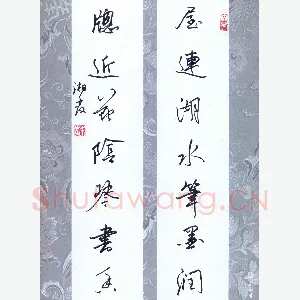 屋連湖水筆墨潤
牕近花陰琴書香
Shufawang.CN